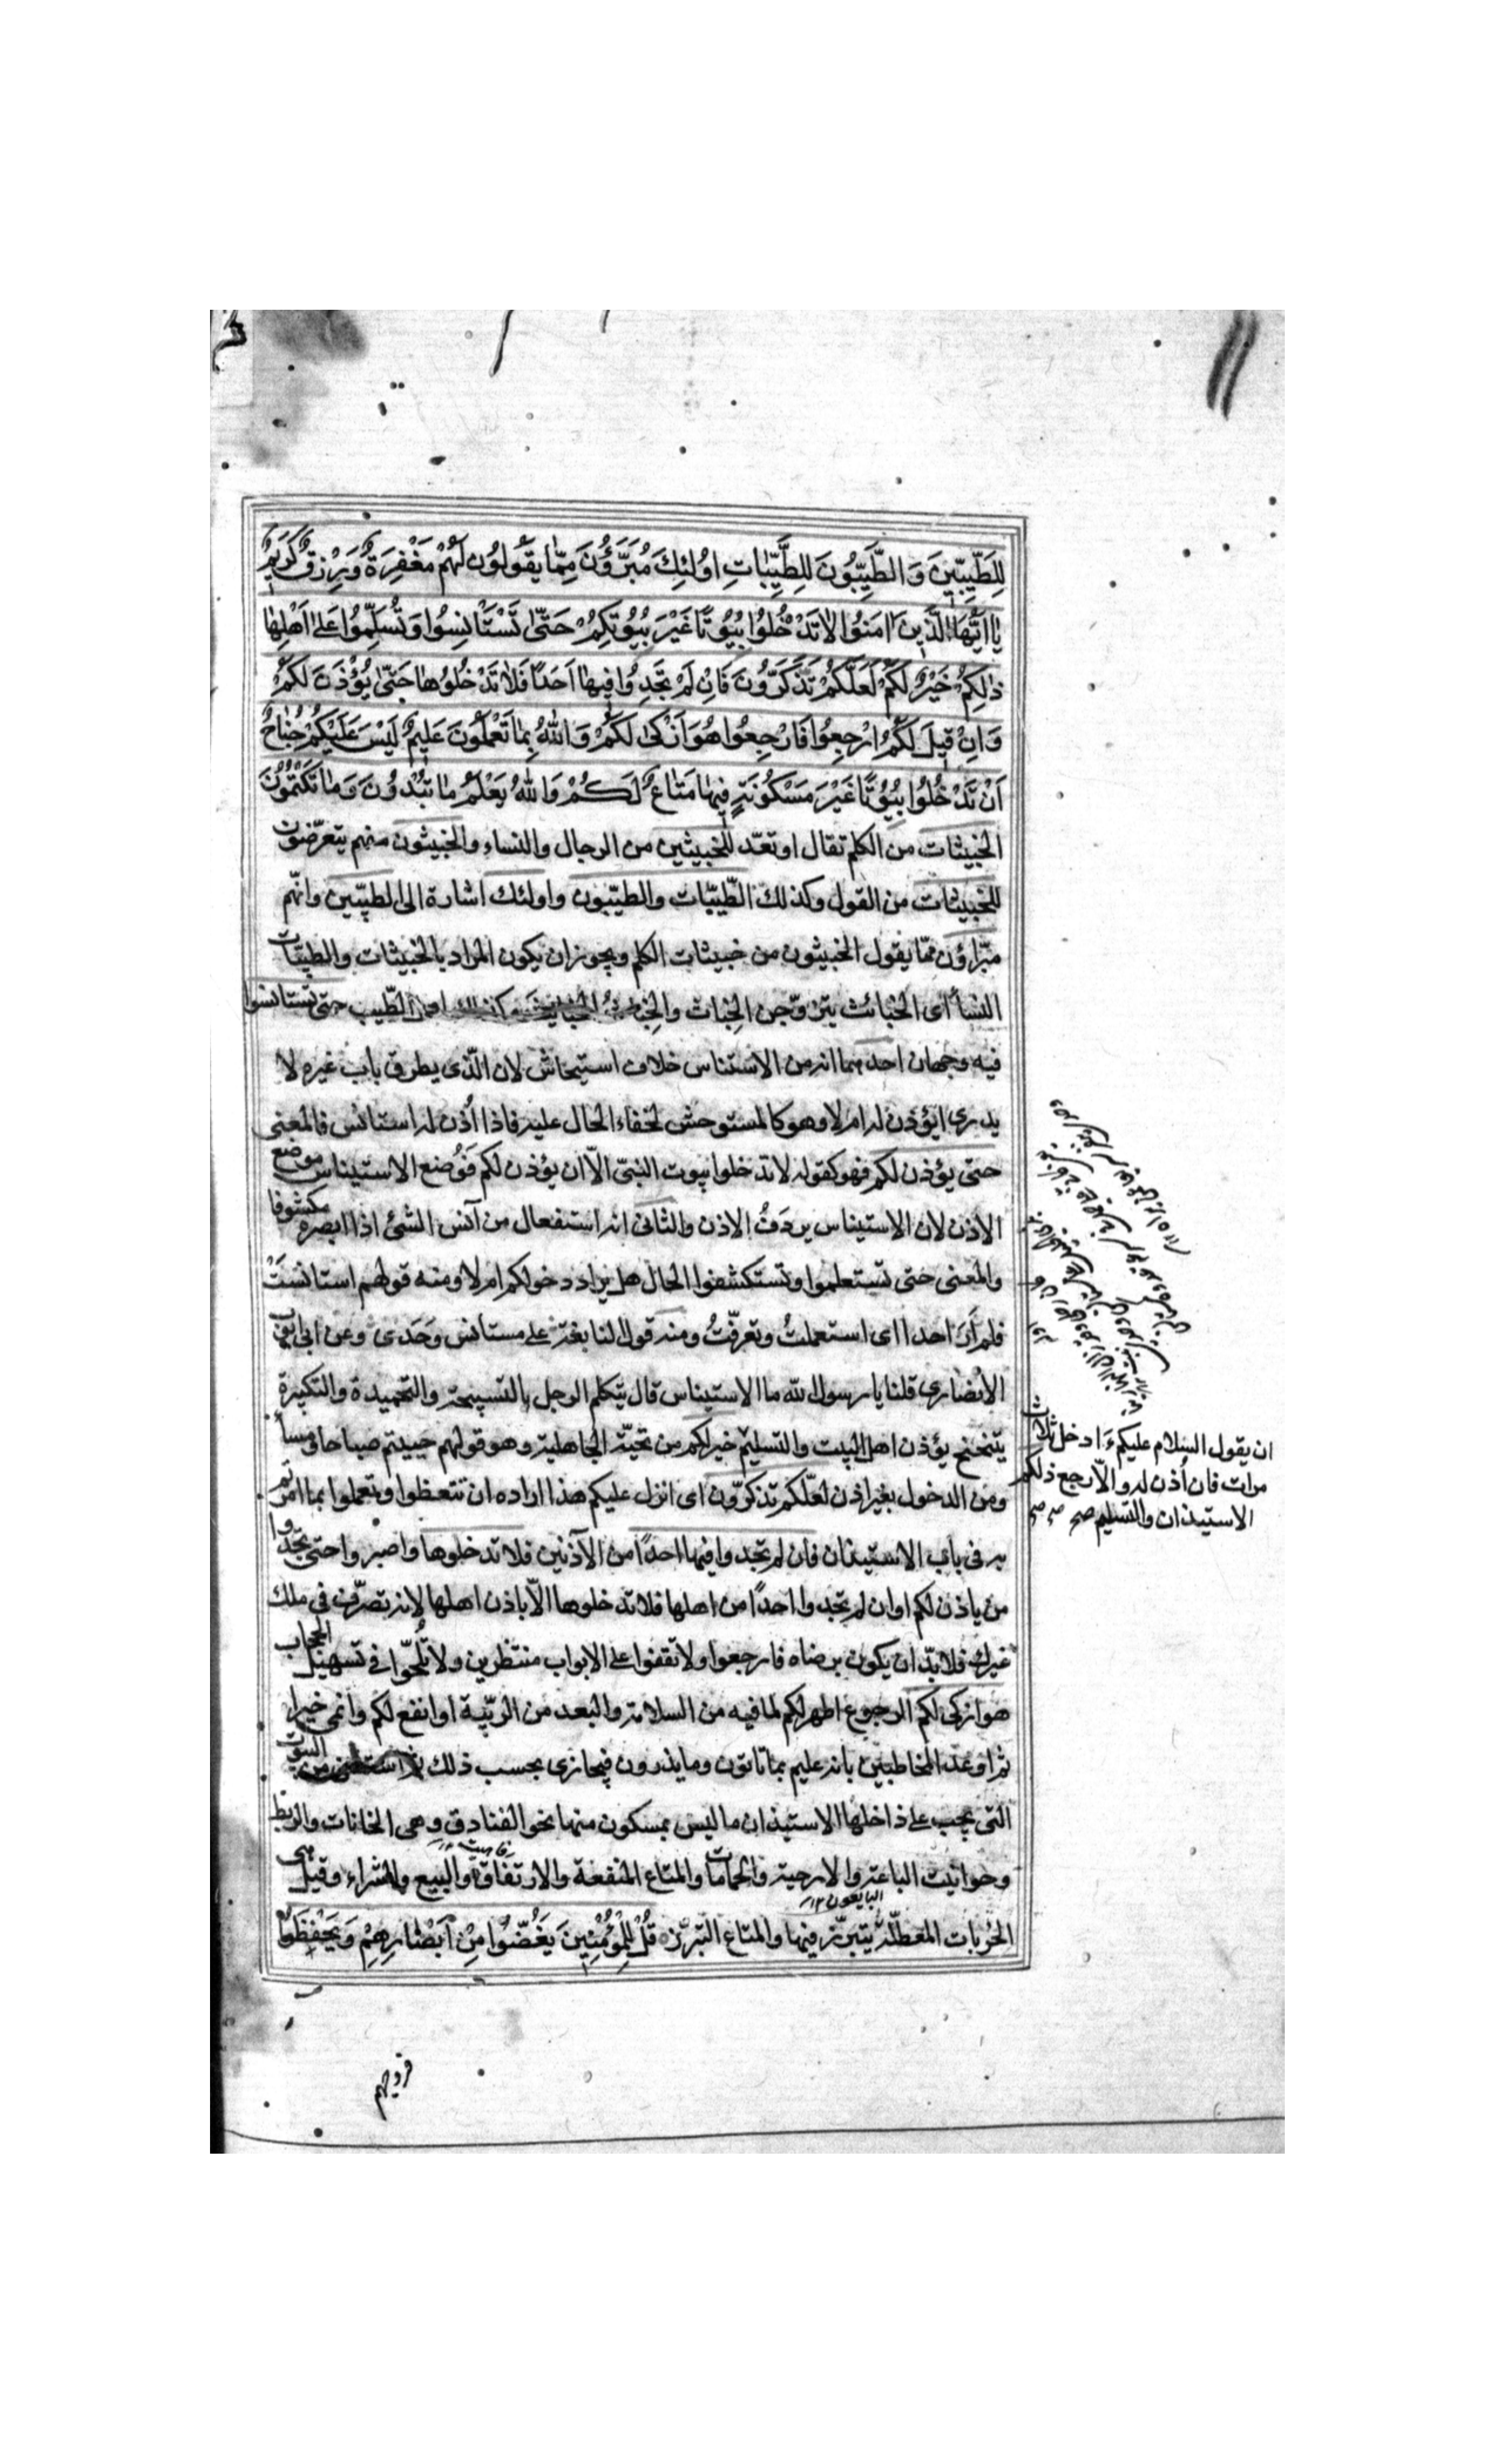 لِلطَّيِّبِينَ وَالطَّيِّبُونَ لِلطَّيِّبَاتِ اُولٰئِكَ مُبَرَّؤُنَ مِمَّا يَقُولُونَ لَهُمْ مَغْفِرَةٌ وَرِزْقٌ كَرِيمٌ
يَا اَيُّهَا الَّذِينَ اٰمَنُوا لَا تَدْخُلُوا بُيُوتًا غَيْرَ بُيُوتِكُمْ حَتّٰى تَسْتَانِسُوا وَتُسَلِّمُوا عَلٰى اَهْلِهَا
ذٰلِكُمْ خَيْرٌ لَكُمْ لَعَلَّكُمْ تَذَكَّرُونَ فَاِنْ لَمْ تَجِدُوا فِيهَا اَحَدًا فَلَا تَدْخُلُوهَا حَتّٰى يُؤْذَنَ لَكُمْ
وَاِنْ قِيلَ لَكُمُ ارْجِعُوا فَارْجِعُوا هُوَ اَزْكٰى لَكُمْ وَاللّٰهُ بِمَا تَعْمَلُونَ عَلِيمٌ لَيْسَ عَلَيْكُمْ جُنَاحٌ
اَنْ تَدْخُلُوا بُيُوتًا غَيْرَ مَسْكُونَةٍ فِيهَا مَتَاعٌ لَكُمْ وَاللّٰهُ يَعْلَمُ مَا تُبْدُونَ وَمَا تَكْتُمُونَ
الخبيثات من الكلم تقال او تعدّ للخبيثين من الرجال والنساء والخبيثون منهم يتعرّضون
للخبيثات من القول وكذلك الطّيّبات والطيّبون واولئك اشارة الى الطيّبين وانّهم
مبرّاؤن ممّا يقول الخبيثون من خبيثات الكلم ويجوز ان يكون المراد بالخبيثات والطيّبات
النساأى الخبائث يتزوّجن الخباث والخباث الخبائث وكذلك اهل الطّيب حتى تستانسوا
فيه وجهان احدهما انه من الاستناس خلاف استيحاش لان الّذى يطرق باب غيره لا
يدرى ايؤذن له ام لا وهو كالمستوحش لخفاء الحال عليه فاذا اُذن له استانس فالمعنى
حتى يؤذن لكم فهو كقوله لا تدخلوا بيوت النبىّ الّا ان يؤذن لكم فَوُضع الاستيناس موضع
الاذن لان الاستيناس يردَفُ الاذن والثانى انه استفعال من آنس الشئ اذا ابصره مكشوفا
والمعنى حتى تستعلموا وتستكشفوا الحال هل يراد دخولكم ام لا ومنه قولهم استانستَ
فلم أرَ احدا اى استعملتُ وتعرّفتُ ومنه قول لنا بغة على مستانس وَحَدى وعن ابى ايوب
الانصارى قلنا يا رسول الله ما الاستيناس قال يتكلم الرجل بالتسبيحة والتحميدة والتكبيرة
يتنحنح يؤذن اهل البيت والتسليم خير لكم من تحيّة الجاهلية وهو قولهم حييتم صباحا ومساأ
ومن الدخول بغير اذن لعلّكم تذكرّون اى انزل عليكم هذا اراده ان تتعظوا وتعملوا بما امرتم
به فى باب الاستيذان فان لم تجدوا فيها احدًا من الآذنين فلا تدخلوها واصبروا حتى تجدوا
من ياذن لكم او ان لم تجدوا احدًا من اهلها فلا تدخلوها الّا باذن اهلها لانه تصرّف فى ملك
غيرك فلا بدّ ان يكون برضاه فارجعوا ولا تقفوا على الابواب منتظرين ولا تُلحّوا فى تسهيل الحجاب
هو ازكى لكم الرجوع اطهر لكم لما فيه من السلامة والبعد من الريّبة او انفع لكم وانمى خيرا
ثم اوعد المخاطبين بانه عليم بما تاتون وما يذرون فيجازى بحسب ذلك ثم استثنى من البيوت
التى يجب على داخلها الاستيذان ما ليس بمسكون منها نحو الفنادق وهى الخانات والربط
وحوانيت الباعة والارحية والحمامات والمتاع المنفعة والارتفاق والبيع والشراء وقيل هى
البايعون ١٢
الخربات المعطلّة يتبرّز فيها والمتاع التبرّز قُلْ لِلْمُؤْمِنِينَ يَغُضُّوا مِنْ اَبْصَارِهِمْ وَيَحْفَظُوا
ان يقول السلام عليكم ءَادخل ثلاث
مرات فان اُذن له والّا رجع ذلكم
الاستيذان والتسليم صح
فروجهم